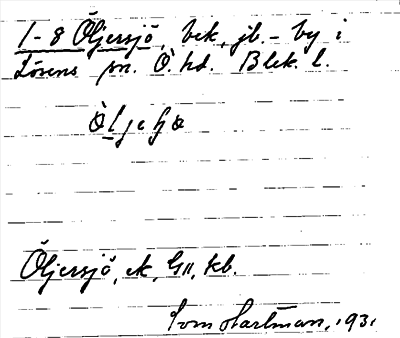 1-8 Öljersjö, bek, jb.- by i
Lösens sn. Ö. hd. Blek. l.
Öljersjö, ek, G11, kb.
Tom Hartman, 1931